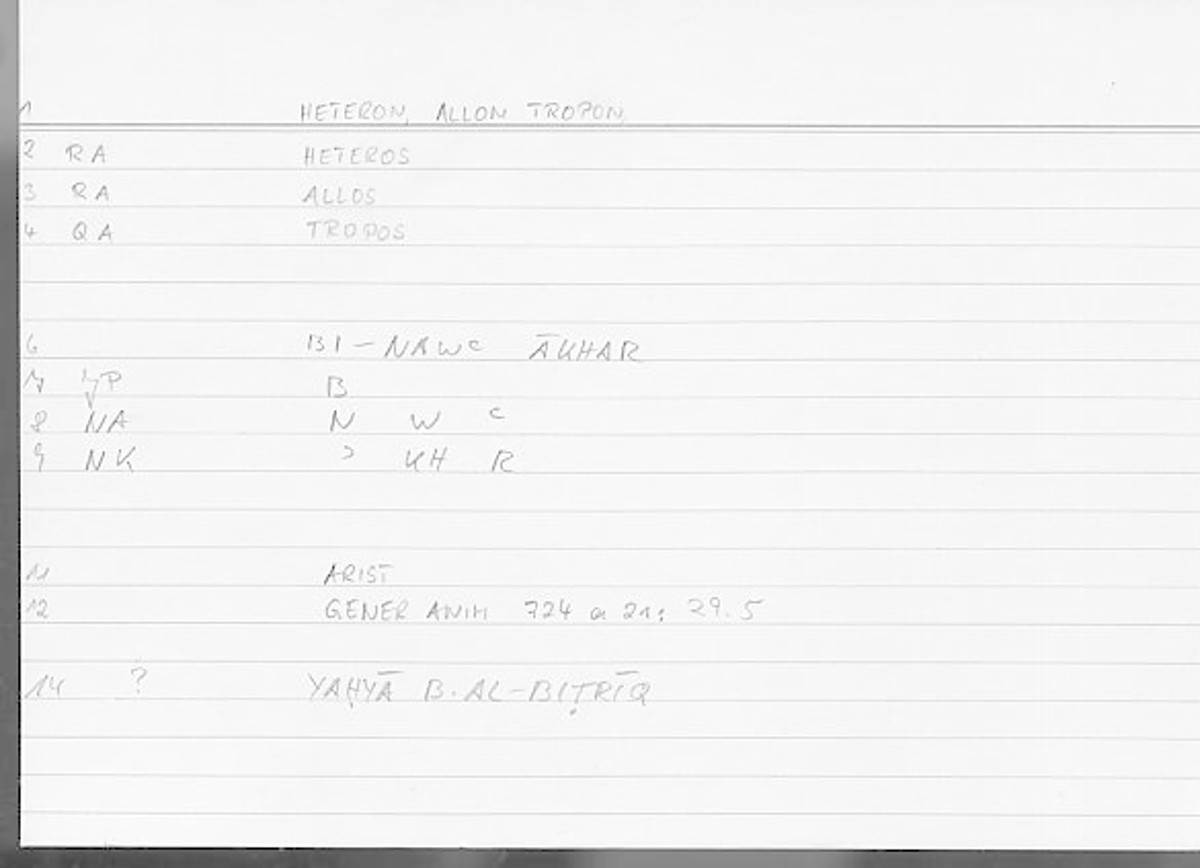 1 HETERON, ALLON TROPON
2 RA HETEROS
3 RA ALLOS
4 QA TROPOS
6 BI-NAWC ĀKHAR
7 P B
8 NA N W C
9 NK ʾ KH R
11 ARIST
12 GENER ANIM 724 a 21: 29.5
14 ? YAḤYĀ B. AL-BIṬRĪQ